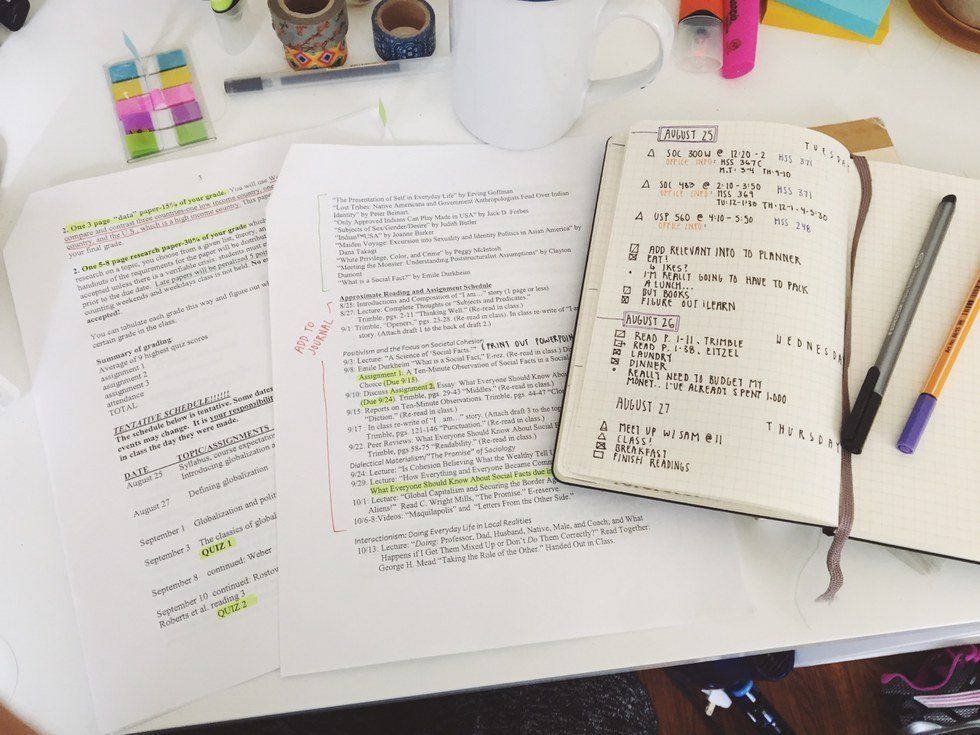 3
2. One 3 page "data" paper-15% of your grade. You will use
compare and contrast three countries-one low income country, one
country, and the U.S., which is a high income country. This paper
your final grade.
2. One 5-8 page research paper-30% of your grade
research on a topic, you choose from a given list, theory, an
handouts of the requirements for the paper will be distributed
accepted unless there is a verifiable crisis. students must
prior to the due date. Late papers will be penalized 5 points
counting weekends and weekdays class is not held. No
accepted!.
You can tabulate each grade this way and figure out
certain grade in the class.
Summary of grading:
Average of 9 highest quiz scores
assignment 1
assignment 2
assignment 3
attendance
TOTAL
TENTATIVE SCHEDULE!!!!!!
The schedule below is tentative. Some dates
events may change. It is your responsibility
in class the day they were made.
DATE TOPIC/ASSIGNMENTS
August 25 Syllabus, course expectation
Introducing globalization
August 27 Defining globalization
September 1 Globalization and polit
September 3 The classics of global
QUIZ 1
September 8 continued: Weber
September 10 continued: Rostow
Roberts et al. reading 3
QUIZ 2
"The Presentation of Self in Everyday Life" by Erving Goffman
"Lost Tribes: Native Americans and Government Anthropologists Feud Over Indian
Identity" by Peter Beinart.
"Only Approved Indians Can Play Made in USA" by Jack D. Forbes
"Subjects of Sex/Gender/Desire" by Judith Butler
"Indian™USA" by Joanne Barker
"Maiden Voyage: Excursion into Sexuality and Identity Politics in Asian America" by
Dana Takagi
"White Privilege, Color, and Crime" by Peggy McIntosh
"Meeting the Monster: Understanding Poststructuralist Assumptions" by Clayton
Dumont
"What is a Social Fact?" by Emile Durkheim
Approximate Reading and Assignment Schedule
8/25: Introductions and Composition of "I am…" story (1 page or less)
8/27: Lecture: Complete Thoughts or "Subjects and Predicates."
Trimble, pgs. 2-11 "Thinking Well." (Re-read in class.)
9/1: Trimble, "Openers," pgs. 25-28. (Re-read in class). In class re-write of "I a
story. (Attach draft 1 to the back of draft 2.)
ADD TO
JOURNAL
Positivism and the Focus on Societal Cohesion
9/3: Lecture: "A Science of 'Social Facts.'" (PRINT OUT POWERPOIN
9/8: Emile Durkheim "What is a Social Fact," E-rez. (Re-read in class.) D
Assignment 1: A Ten-Minute Observation of Social Facts in a Social
Choice (Due 9/15).
9/10: Discuss Assignment 2, Essay: What Everyone Should Know Abou
(Due 9/24). Trimble, pgs. 29-43 "Middles." (Re-read in class.)
9/15: Reports on Ten-Minute Observations. Trimble, pgs. 44-47 "Clo
"Diction." (Re-read in class.)
9/17: In class re-write of "I am…" story. (Attach draft 3 to the top
Trimble, pgs. 121-146 "Punctuation." (Re-read in class.)
9/22: Peer Reviews: What Everyone Should Know About Social
Trimble, pgs. 58-75 "Readability." (Re-read in class.)
Dialectical Materialism/"The Promise" of Sociology
9/24: Lecture: "Is Cohesion Believing What the Wealthy Tell U
9/29: Lecture: "How Everything and Everyone Became Com
What Everyone Should Know About Social Facts due in
10/1: Lecture: "Global Capitalism and Securing the Border Ag
Aliens!'" Read C. Wright Mills, "The Promise." E-reserve.
10/6-8:Videos: "Maquilapolis" and "Letters From the Other Side."
Interactionism: Doing Everyday Life in Local Realities
10/13: Lecture: "Doing: Professor, Dad, Husband, Native, Male, and Coach; and What
Happens if I Get Them Mixed Up or Don't Do Them Correctly?" Read Together:
George H. Mead "Taking the Role of the Other." Handed Out in Class.
AUGUST 25
TUESDAY
SOC 300W @ 12:20-2 HSS 371
OFFICE INFO: HSS 367C
M,T: 3-4 TH:9-10
SOC 483 @ 2:10-3:50 HSS 371
OFFICE INFO: HSS 369
TU:12-1:30 TH:12-1, 4-5:30
USP 560 @ 4:10-5:50 HSS 248
OFFICE INFO:
ADD RELEVANT INFO TO PLANNER
EAT!
& IKES?
I'M REALLY GOING TO HAVE TO PACK
A LUNCH...
BUY BOOKS
FIGURE OUT iLEARN
AUGUST 26
WEDNESDAY
READ P. 1-11, TRIMBLE
READ P. 1-38, EITZEL
LAUNDRY
DINNER
REALLY NEED TO BUDGET MY
MONEY.. I'VE ALREADY SPENT 1,000
AUGUST 27
THURSDAY
MEET UP W/SAM @ 11
CLASS!
BREAKFAST
FINISH READINGS